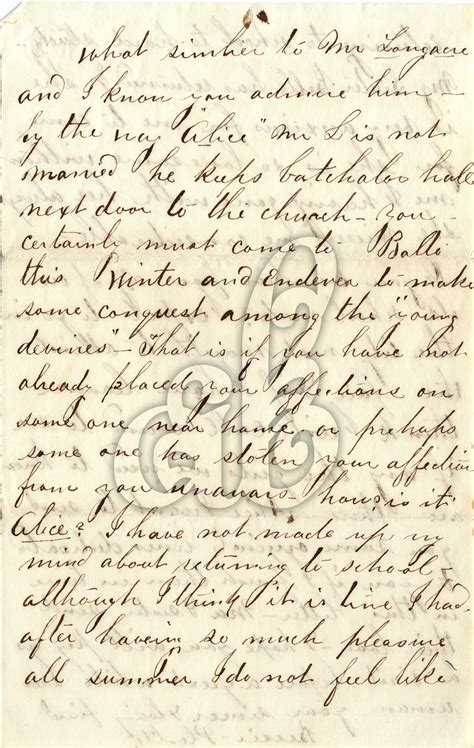 what similier to Mr Longacre
and I know you admire him -
by the way "Alice" Mr L is not
married he keeps batchalor hall
next door to the church - you
certainly must come to Balto
this Winter and Endever to make
some conquest among the "young
devines" - That is if you have not
already placed your affections on
some one near home or prehaps
some one has stolen your affection
from you unawars - how is it
Alice? I have not made up my
mind about returning to school -
although I think it is time I had
after haveing so much pleasure
all summer I do not feel like